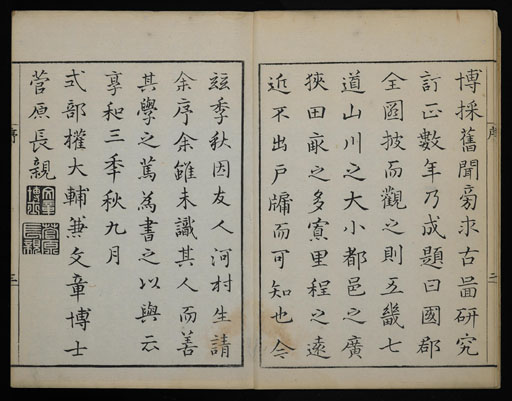 博採舊聞旁求古圖研究
訂正數年乃成題曰國郡
全圖披而觀之則五畿七
道山川之大小都邑之廣
狹田畝之多寡里程之遠
近不出戶牖而可知也今
玆季秋因友人河村生請
余序余雖未識其人而善
其學之篤為書之以與云
享和三年秋九月
式部權大輔兼文章博士
菅原長親
序
三
序
三